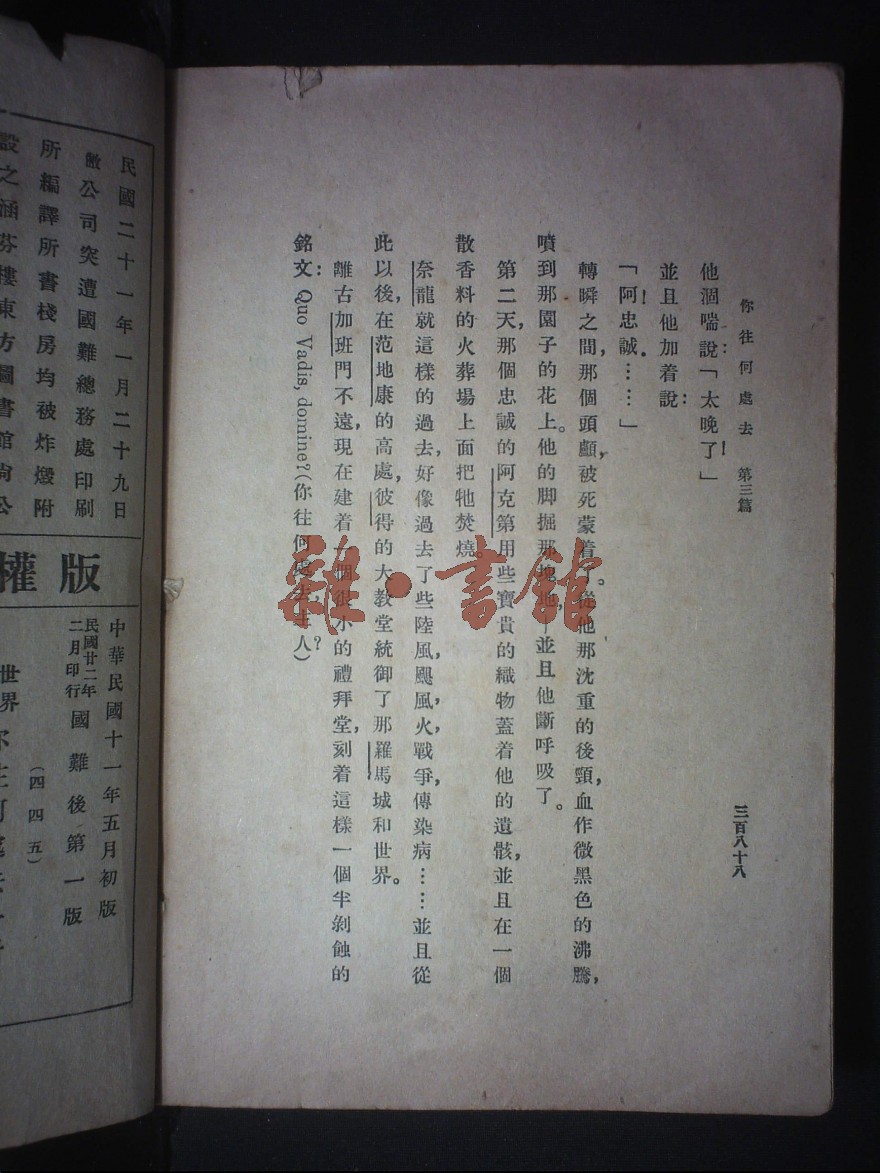 你往何處去 第三篇
三百八十八
他涸喘說：「太晚了！」
並且他加着說：
「阿！忠誠……」
轉瞬之間，那個頭顱，被死蒙着了。從他那沈重的後頸，血作微黑色的沸騰，
噴到那園子的花上。他的脚掘那塊地，並且他斷呼吸了。
第二天，那個忠誠的阿克第用些寶貴的織物蓋着他的遺骸，並且在一個
散香料的火葬場上面把牠焚燒。
奈龍就這樣的過去，好像過去了些陸風，颶風，火，戰爭，傳染病……並且從
此以後，在范地康的高處，彼得的大教堂統御了那羅馬城和世界。
離古加班門不遠，現在建着一個很小的禮拜堂，刻着這樣一個半剝蝕的
銘文：Quo Vadis, domine?（你往何處去，主人？）
雜·書館
民國二十一年一月二十九日
敝公司突遭國難總務處印刷
所編譯所書棧房均被炸燬附
設之涵芬樓東方圖書館尚公
版權
中華民國十一年五月初版
民國廿二年二月印行 國難後第一版
（四四五）
世界